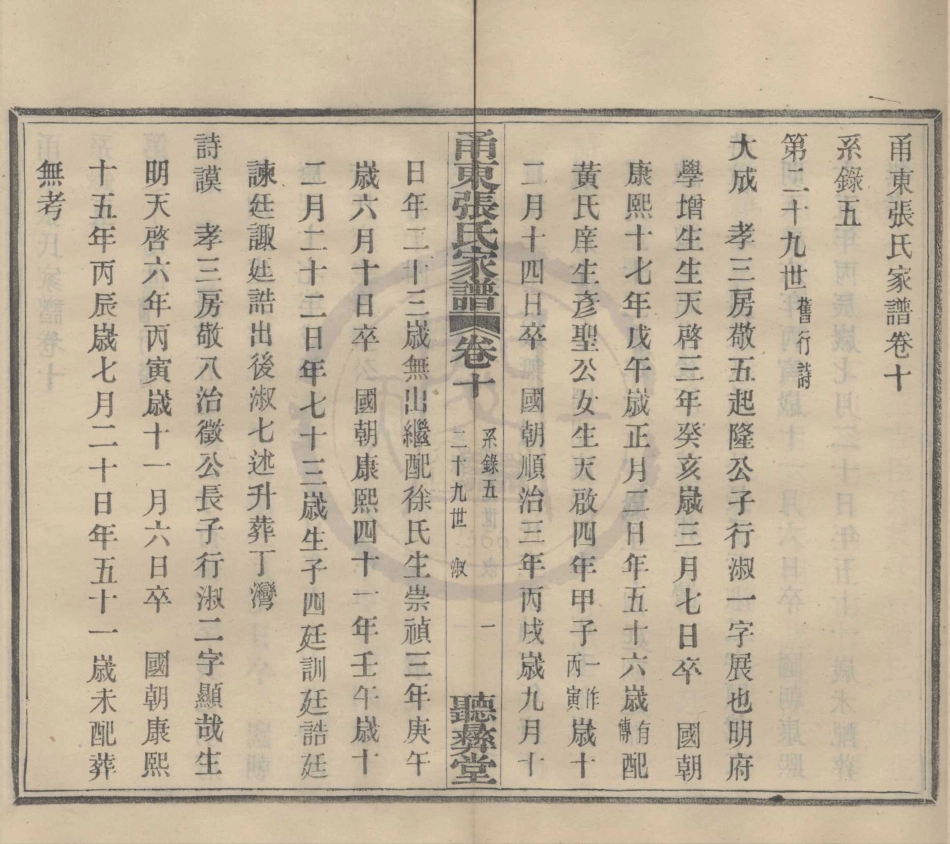 甬東張氏家譜卷十
系錄五
第二十九世舊行詩
大成 孝三房敬五起隆公子行淑一字展也明府
學增生生天啓三年癸亥歲三月七日卒 國朝
康熙十七年戊午歲正月二日年五十六歲有傳配
黃氏庠生彥聖公女生天啟四年甲子一作丙寅歲十
二月十四日卒 國朝順治三年丙戌歲九月十
甬東張氏家譜 卷十 系錄五 二十九世 淑 一 聽彝堂
日年二十三歲無出繼配徐氏生崇禎三年庚午
歲六月十日卒 國朝康熙四十一年壬午歲十
二月二十二日年七十三歲生子四廷訓廷誥廷
諫廷諏廷誥出後淑七述升葬丁灣
詩謨 孝三房敬八治徵公長子行淑二字顯哉生
明天啓六年丙寅歲十一月六日卒 國朝康熙
十五年丙辰歲七月二十日年五十一歲未配葬
無考